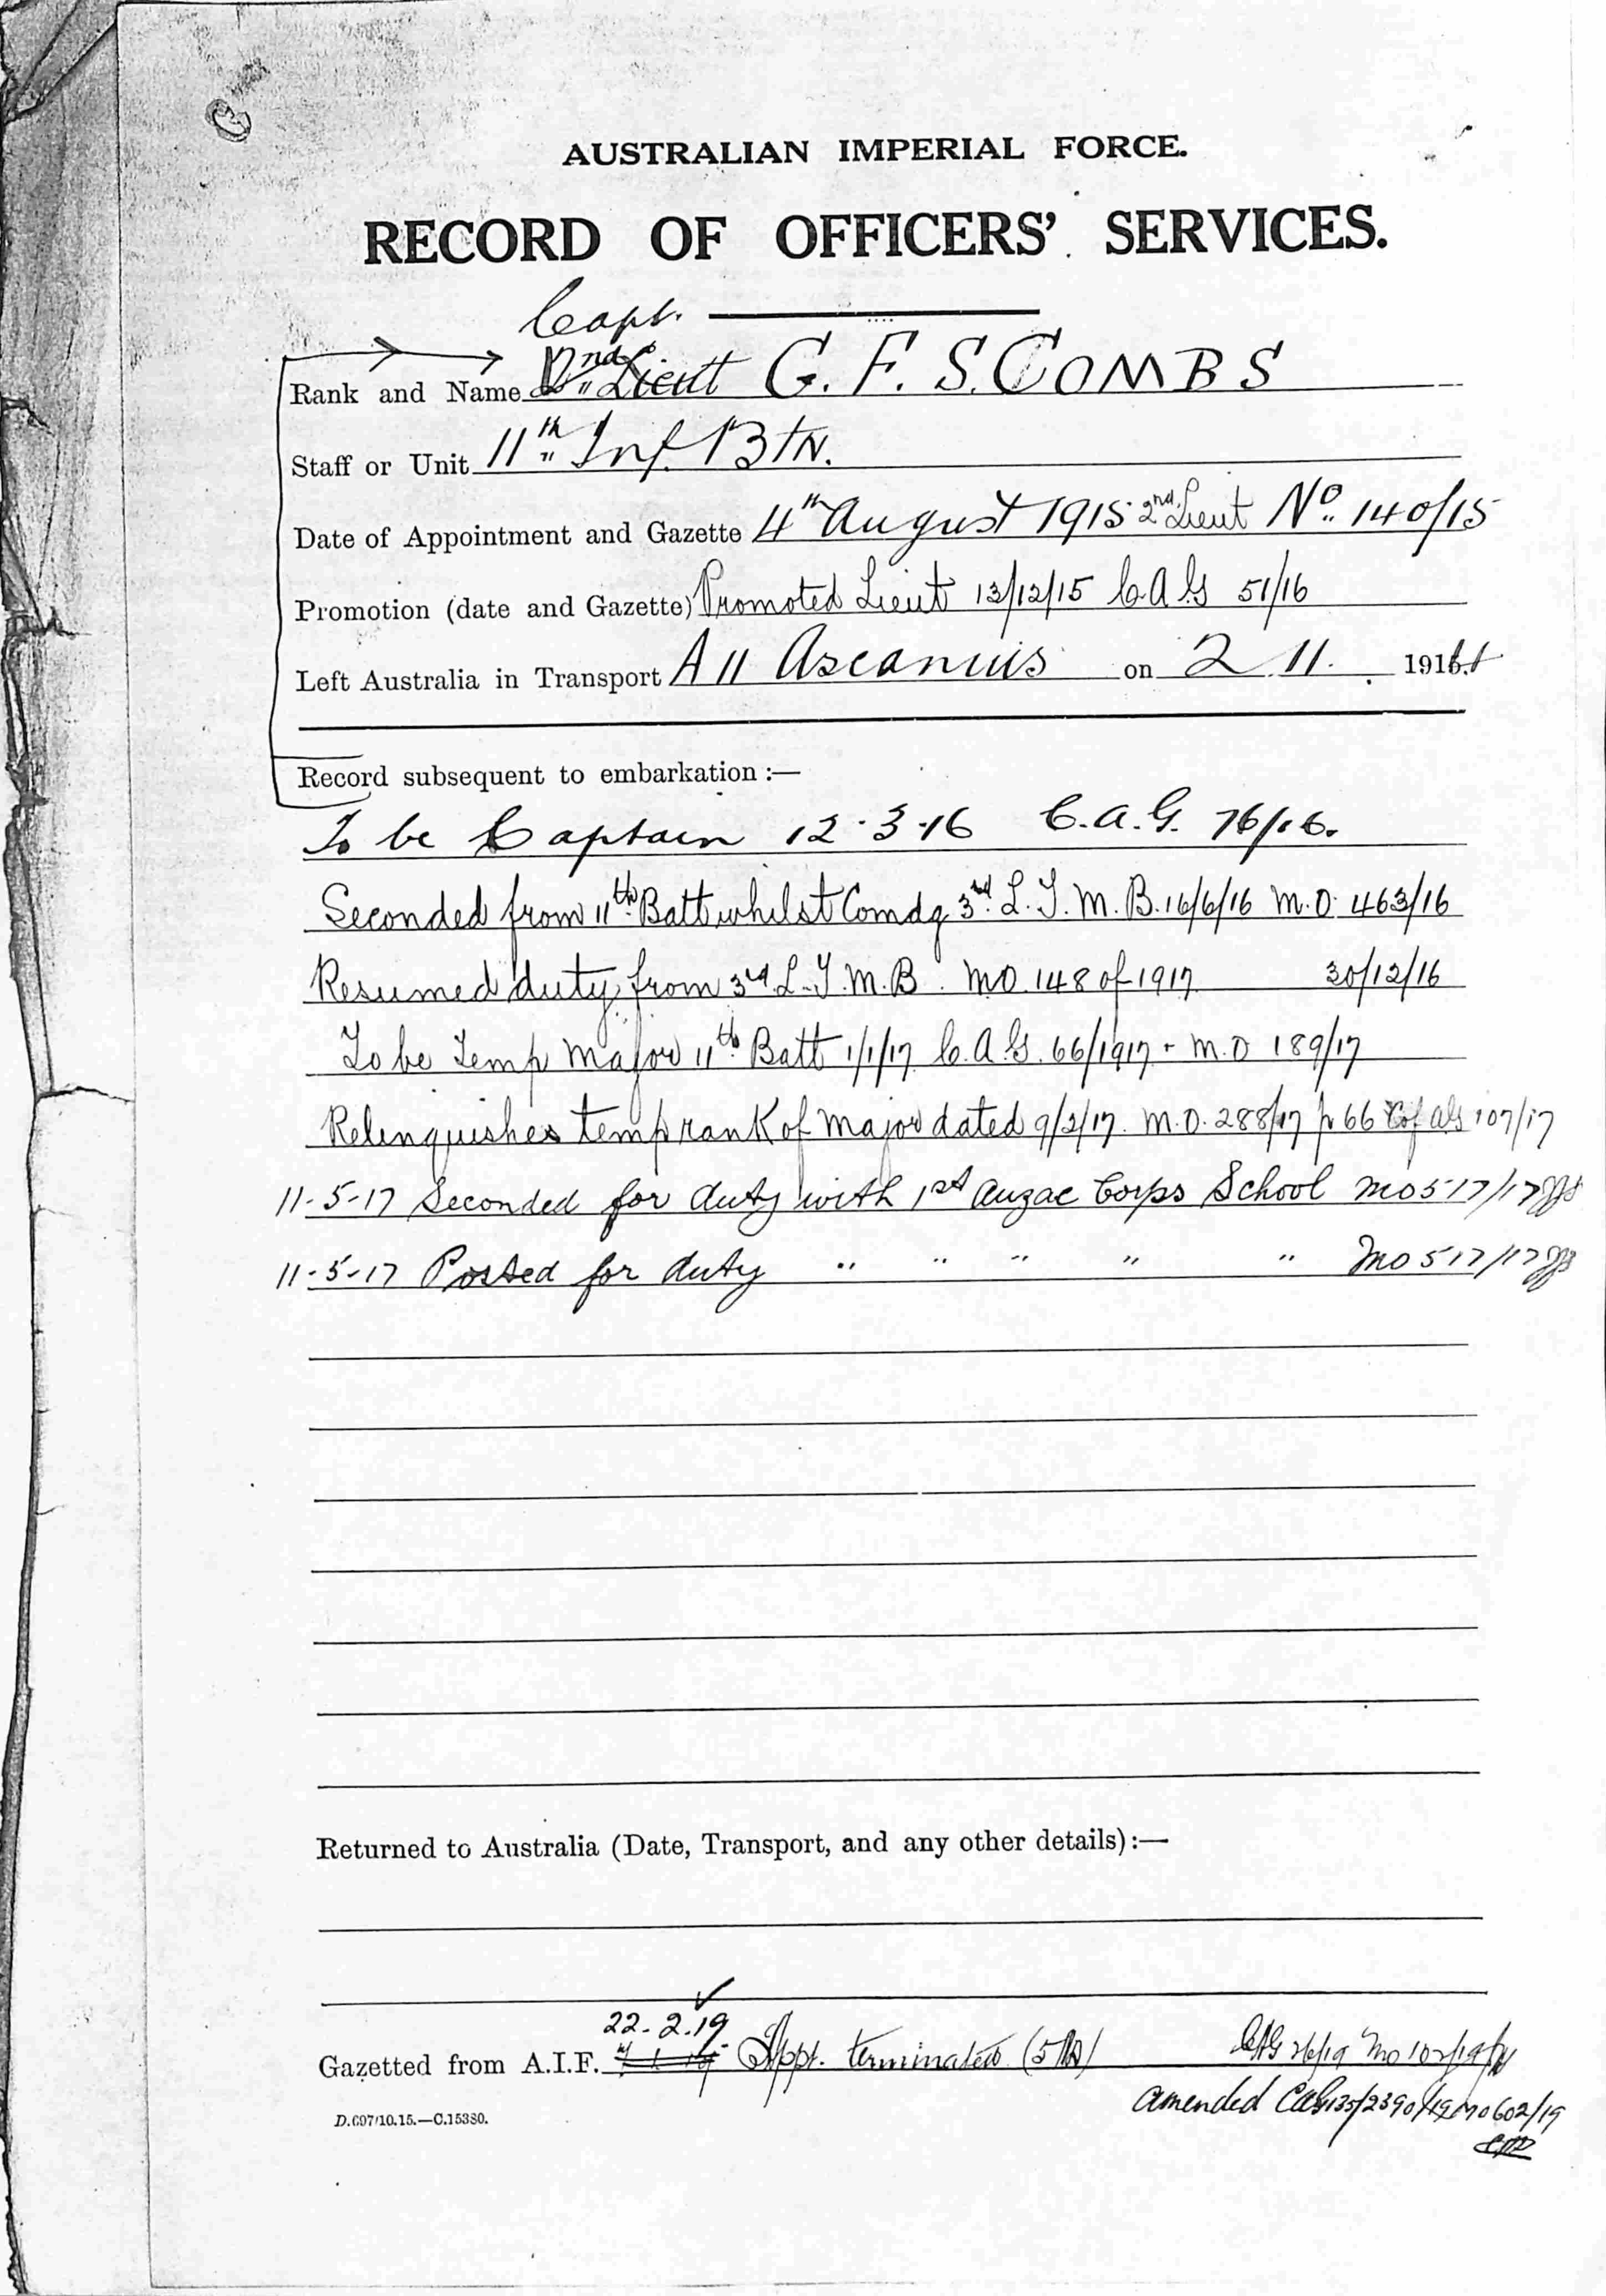 AUSTRALIAN IMPERIAL FORCE.
RECORD OF OFFICERS' SERVICES.
Capt.
Rank and Name 2nd Lieut G. F. S. COMBS
Staff or Unit 11th Inf. BTN.
Date of Appointment and Gazette 4th August 1915 2nd Lieut No. 140/15
Promotion (date and Gazette) Promoted Lieut 13/12/15 C.A.G 51/16
Left Australia in Transport A 11 Ascanius on 2 11. 191
Record subsequent to embarkation :—
To be Captain 12.3.16 C.A.G. 76/16.
Seconded from 11th Batt whilst Comdg 3rd. L. T. M. B. 16/6/16 M.O. 463/16
Resumed duty from 3rd L.T.M.B. MO. 148 of 1917 30/12/16
To be Temp Major 11th Batt 1/1/17 C.A.G. 66/1917 - M.O 189/17
Relinquishes temp rank of Major dated 9/2/17. M.O. 288/17 p 66 C of AG 107/17
11-5-17 Seconded for duty with 1st Anzac Corps School MO 517/17
11-5-17 Posted for duty " " " " " MO 517/17
Returned to Australia (Date, Transport, and any other details) :—
22.2.19
Gazetted from A.I.F. Appt. terminated (5 MD) CAG 26/19 MO 102/19
amended CAG 135/2390/19 MO 602/19
D.697/10.15.—C.15380.